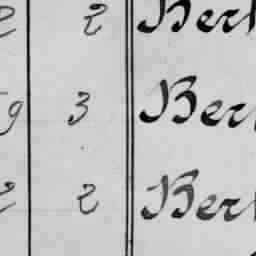 2 2 Ber
9 3 Ber
2 2 Ber